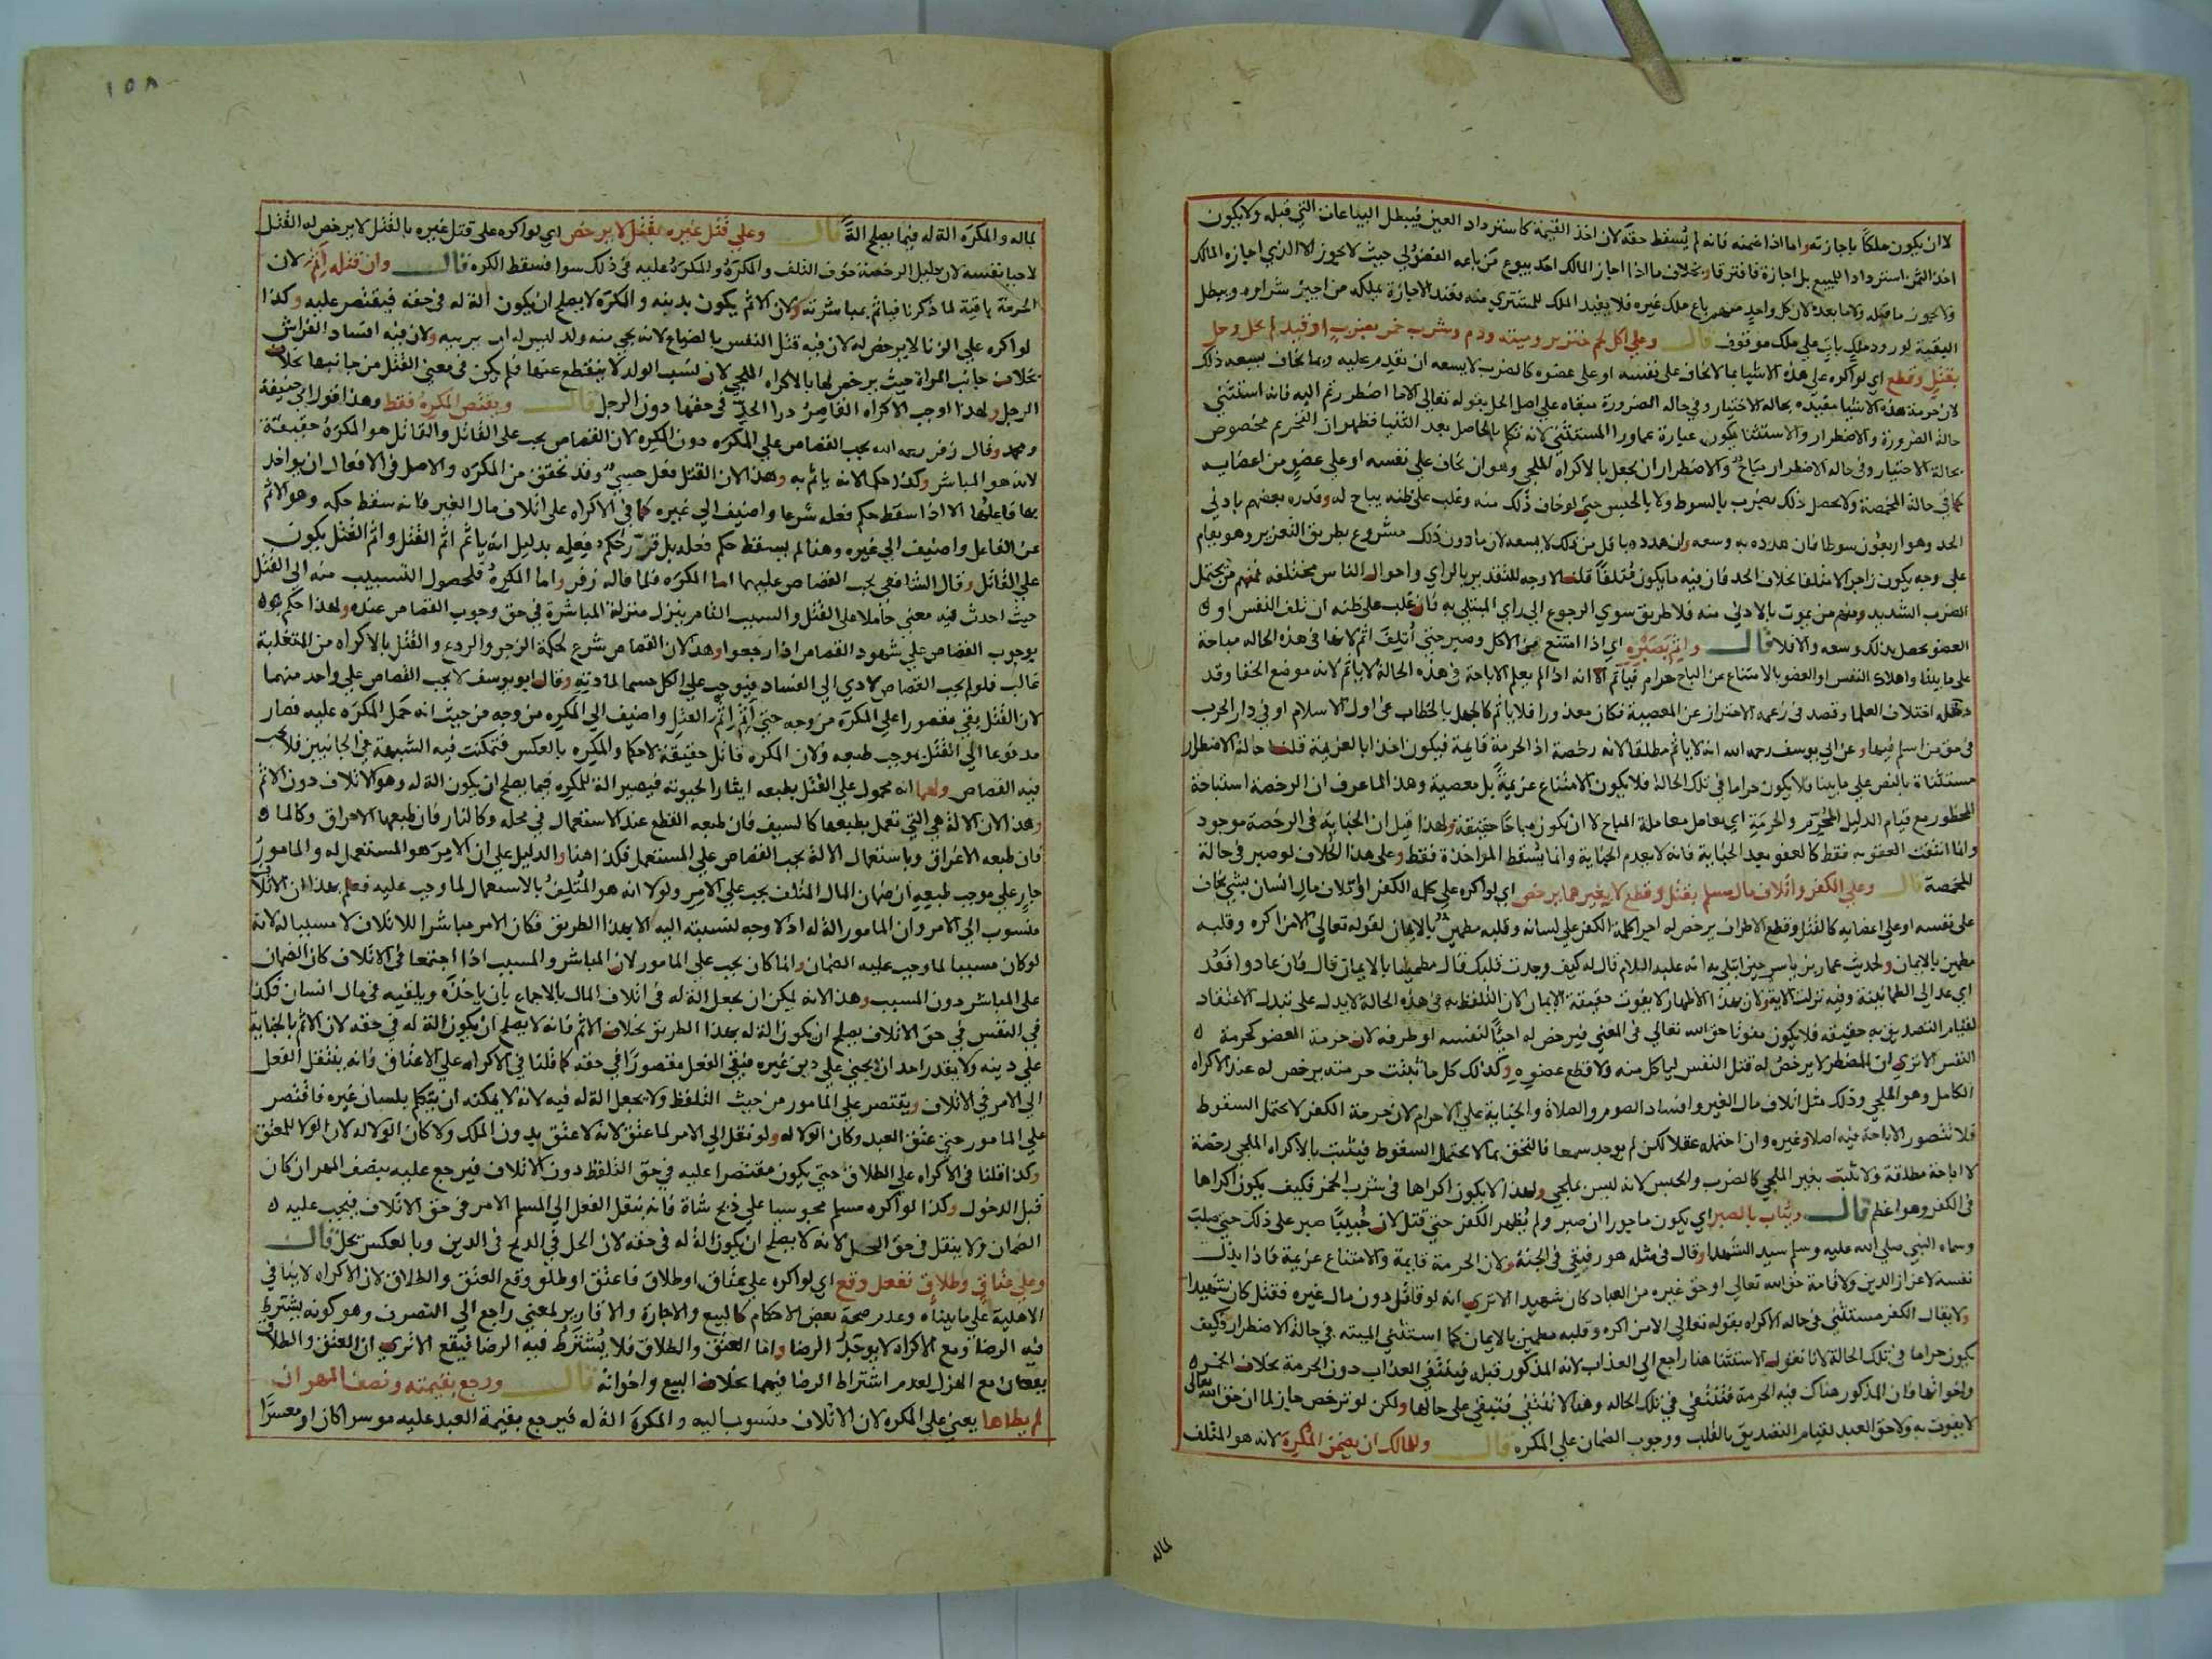 لا ان يكون ملكا باجازته واما اذا ضمنه فانه لم يسقط حقه لان اخذ القيمة كاسترداد العين فيبطل البياعات التي قبله ولا يكون
اخذ الثمن استردادا للمبيع بل اجازة فافترقا وبخلاف ما اذا اجاز المالك احد بيوع من باعه الفضولي حيث لا يجوز الا الذي اجازه المالك
ولا يجوز ما قبله ولا ما بعده لان كل واحد منهم باع ملك غيره فلا يفيد الملك للمشتري منه فعند الاجازة يملكه من اجيز شراوه ويبطل
البقية لورود ملك بات على ملك موقوف قال وعلى اكل لحم خنزير وميتة ودم وشرب خمر بضرب او قيد لم يحل وحل
بقتل وقطع اي لو اكره على هذه الاشيا بما لا يخاف على نفسه او على عضوه كالضرب لا يسعه ان يقدم عليه وبما يخاف يسعه ذلك
لان حرمة هذه الاشيا مقيدة بحالة الاختيار وفي حالة الضرورة مبقاه على اصل الحل بقوله تعالى الا ما اضطررتم اليه فانه استثنى
حالة الضرورة والاضطرار والاستثنا يكون عبارة عما ورا المستثنى لانه تكلم بالحاصل بعد الثنيا فظهر ان التحريم مخصوص
بحالة الاختيار وفي حالة الاضطرار مباح والاضطرار ان يحصل بالاكراه الملجي وهو ان يخاف على نفسه او على عضو من اعضايه
كما في حالة المخمصة ولا يحصل ذلك بضرب بالسوط ولا بالحبس حتى لو خاف ذلك منه وغلب على ظنه يباح له وقدره بعضهم بادنى
الحد وهو اربعون سوطا فان هدده به وسعه وان هدده باقل من ذلك لا يسعه لان ما دون ذلك مشروع بطريق التعزير وهو يقام
على وجه يكون زاجرا لا متلفا بخلاف الحد فان فيه ما يكون متلفا قلنا لا وجه للتقدير بالراي واحوال الناس مختلفة فمنهم من يحتمل
الضرب الشديد ومنهم من يموت بالادنى منه فلا طريق سوى الرجوع الى راي المبتلى به فان غلب على ظنه ان تلف النفس او
العضو يحصل بذلك وسعه والا فلا قال واثم بصبره اي اذا امتنع من الاكل وصبر حتى اتلف اثم لانها في هذه الحالة مباحة
على ما بينا واهلاك النفس او العضو بالامتناع عن المباح حرام فياثم الا انه اذا لم يعلم الاباحة في هذه الحالة لا ياثم لانه موضع الخفا وقد
دخله اختلاف العلما وقصد في زعمه الاحتراز عن المعصية فكان معذورا فلا ياثم كالجهل بالخطاب في اول الاسلام او في دار الحرب
في حق من اسلم فيها وعن ابي يوسف رحمه الله انه لا ياثم مطلقا لانه رخصة اذ الحرمة قايمة فيكون اخذا بالعزيمة قلنا حالة الاضطرار
مستثناة بالنص على ما بينا فلا يكون حراما في تلك الحالة فلا يكون الامتناع عزيمة بل معصية وهذا لما عرف ان الرخصة استباحة
المحظور مع قيام الدليل المحرم والحرمة اي يعامل معاملة المباح لا ان يكون مباحا حقيقة ولهذا قيل ان الجناية في الرخصة موجود
وانما انتفت العقوبة فقط كالعفو بعد الجناية فانه لا يعدم الجناية وانما يسقط المؤاخذة فقط وعلى هذا الخلاف لو صبر في حالة
المخمصة قال وعلى الكفر واتلاف مال مسلم بقتل وقطع لا بغيرهما يرخص اي لو اكره على كلمة الكفر او اتلاف مال انسان بشي يخاف
على نفسه او على اعضايه كالقتل وقطع الاطراف يرخص له اجرا كلمة الكفر على لسانه وقلبه مطمين بالايمان لقوله تعالى الا من اكره وقلبه
مطمين بالايمان ولحديث عمار بن ياسر حين ابتلي به انه عليه السلام قال له كيف وجدت قلبك قال مطمينا بالايمان قال فان عادوا فعد
اي عد الى الطمانينة وفيه نزلت الاية ولان بهذا الاظهار لا يفوت حقيقة الايمان لان التلفظ به في هذه الحالة لا يدل على تبدل الاعتقاد
لقيام التصديق به حقيقة فلا يكون مفوتا حق الله تعالى في المعنى فيرخص له احيا لنفسه او طرفه لان حرمة العضو كحرمة
النفس الا ترى ان المضطر لا يرخص له قتل النفس لياكل منه ولا قطع عضوه وكذلك كل ما ثبتت حرمته يرخص له عند الاكراه
الكامل وهو الملجي وذلك مثل اتلاف مال الغير وافساد الصوم والصلاة والجناية على الاحرام لان حرمة الكفر لا يحتمل السقوط
فلا تتصور الاباحة فيه اصلا وغيره وان احتمله عقلا لكن لم يوجد سمعا فالتحق بما لا يحتمل السقوط فيثبت بالاكراه الملجي رخصة
لا اباحة مطلقة ولا تثبت بغير الملجي كالضرب والحبس لانه ليس بملجي ولهذا لا يكون اكراها في شرب الخمر فكيف يكون اكراها
في الكفر وهو اعظم قال ويثاب بالصبر اي يكون ماجورا ان صبر ولم يظهر الكفر حتى قتل لان خبيبا صبر على ذلك حتى صلب
وسماه النبي صلى الله عليه وسلم سيد الشهدا وقال في مثله هو رفيقي في الجنة ولان الحرمة قايمة والامتناع عزيمة فاذا بذل
نفسه لاعزاز الدين ولاقامة حق الله تعالى او حق غيره من العباد كان شهيدا الا ترى انه لو قاتل دون مال غيره فقتل كان شهيدا
ولا يقال الكفر مستثنى في حالة الاكراه بقوله تعالى الا من اكره وقلبه مطمين بالايمان كما استثني الميتة في حالة الاضطرار فكيف
يكون حراما في تلك الحالة لانا نقول الاستثنا هنا راجع الى العذاب لانه المذكور قبله فينتفي العذاب دون الحرمة بخلاف الخمر
واخواتها فان المذكور هناك فيه الحرمة فتنتفي في تلك الحالة وهنا لا تنتفي فتبقى على حالها ولكن لو ترخص جاز لما ان حق الله تعالى
لا يفوت به ولا حق العبد لقيام التصديق بالقلب ووجوب الضمان على المكره قال وللمالك ان يضمن المكره لانه هو المتلف
لماله
١٥٨
لماله والمكره الة له فيما يصلح الة قال وعلى قتل غيره بقتل لا يرخص اي لو اكره على قتل غيره بالقتل لا يرخص له القتل
لاحيا نفسه لان دليل الرخصة خوف التلف والمكره والمكره عليه في ذلك سوا فسقط الكره قال وان قتله اثم لان
الحرمة باقية لما ذكرنا فياثم بمباشرته ولان الاثم يكون بدينه والمكره لا يصلح ان يكون الة له في حقه فيقتصر عليه وكذا
لو اكره على الزنا لا يرخص له لان فيه قتل النفس بالضياع لانه يجي منه ولد ليس له اب يربيه ولان فيه افساد الفراش
بخلاف جانب المراة حيث يرخص لها بالاكراه الملجي لان نسب الولد لا ينقطع عنها فلم يكن في معنى القتل من جانبها بخلاف
الرجل ولهذا اوجب الاكراه القاصر درا الحد في حقها دون الرجل قال ويقتص المكره فقط وهذا قول ابي حنيفة
ومحمد وقال زفر رحمه الله يجب القصاص على المكره دون المكره لان القصاص يجب على القاتل والقاتل هو المكره حقيقة
لانه هو المباشر وكذا حكما لانه ياثم به وهذا لان القتل فعل حسي وقد تحقق من المكره والاصل في الافعال ان يواخذ
بها فاعلها الا اذا سقط حكم فعله شرعا واضيف الى غيره كما في الاكراه على اتلاف مال الغير فانه سقط حكمه وهو الاثم
عن الفاعل واضيف الى غيره وهنا لم يسقط حكم فعله بل قرر احكم فعله بدليل انه ياثم اثم القتل واثم القتل يكون
على القاتل وقال الشافعي يجب القصاص عليهما اما المكره فلما قاله زفر واما المكره فلحصول التسبيب منه الى القتل
حيث احدث فيه معنى حاملا على القتل والسبب التام ينزل منزلة المباشرة في حق وجوب القصاص عنده ولهذا حكم
بوجوب القصاص على شهود القصاص اذا رجعوا وهذا لان القصاص شرع لحكمة الزجر والردع والقتل بالاكراه من المتغلبة
غالب فلو لم يجب القصاص لادي الى الفساد فيوجب على الكل حسما لمادته وقال ابو يوسف لا يجب القصاص على واحد منهما
لان القتل بقي مقصورا على المكره من وجه حتى اثم اثم القتل واضيف الى المكره من وجه من حيث انه حمل المكره عليه فصار
مدفوعا الى القتل بموجب طبعه ولان المكره قاتل حقيقة لا حكما والمكره بالعكس فتمكنت فيه الشبهة في الجانبين فلا يجب
فيه القصاص ولهما انه محمول على القتل بطبعه ايثارا لحيوته فيصير الة للمكره فيما يصلح ان يكون الة له وهو الاتلاف دون الاثم
وهذا لان الالة هي التي تعمل بطبعها كالسيف فان طبعه القطع عند الاستعمال في محله وكالنار فان طبعها الاحراق وكالما
فان طبعه الاغراق وباستعمال الالة يجب القصاص على المستعمل فكذا هنا والدليل على ان الامر هو المستعمل له والمامور
جار على موجب طبعه ان ضمان المال المتلف يجب على الامر ولولا انه هو المتلف بالاستعمال لما وجب عليه فعلم بهذا ان الاتلاف
منسوب الى الامر وان المامور الة له اذ لا وجه لنسبته اليه الا بهذا الطريق فكان الامر مباشرا للاتلاف لا مسببا له لانه
لو كان مسببا لما وجب عليه الضمان وانما كان يجب على المامور لان المباشر والمسبب اذا اجتمعا في الاتلاف كان الضمان
على المباشر دون المسبب وهذا لانه يمكن ان يجعل الة له في اتلاف المال بالاجماع بان ياخذه ويلقيه في مال انسان فكذا
في النفس في حق الاتلاف يصلح ان يكون الة له بهذا الطريق بخلاف الاثم فانه لا يصلح ان يكون الة له في حقه لان الاثم بالجناية
على دينه ولا يقدر احد ان يجني على دين غيره فبقي الفعل مقصورا في حقه كما قلنا في الاكراه على الاعتاق فانه ينتقل الفعل
الى الامر في الاتلاف ويقتصر على المامور من حيث التلفظ ولا يجعل الة له فيه لانه لا يمكنه ان يتكلم بلسان غيره فاقتصر
على المامور حتى عتق العبد وكان الولا له ولو نقل الى الامر لما عتق لانه لا عتق بدون الملك ولا كان الولا له لان الولا للمعتق
وكذا قلنا في الاكراه على الطلاق حتى يكون مقتصرا عليه في حق التلفظ دون الاتلاف فيرجع عليه بنصف المهر ان كان
قبل الدخول وكذا لو اكره مسلم مجوسيا على ذبح شاة فانه ينقل الفعل الى المسلم الامر في حق الاتلاف فيجب عليه
الضمان ولا ينقل في حق الحل لانه لا يصلح ان يكون الة له في حقه لان الحل في الذبح في الدين وبالعكس يحل قال
وعلى عتاق وطلاق ففعل وقع اي لو اكره على عتاق او طلاق فاعتق او طلق وقع العتق والطلاق لان الاكراه لا ينافي
الاهلية على ما بيناه وعدم صحة بعض الاحكام كالبيع والاجارة والاقارير لمعنى راجع الى التصرف وهو كونه يشترط
فيه الرضا ومع الاكراه لا يوجد الرضا واما العتق والطلاق فلا يشترط فيه الرضا فيقع الا ترى ان العتق والطلاق
يقعان مع الهزل لعدم اشتراط الرضا فيهما بخلاف البيع واخواته قال ورجع بقيمته ونصف المهر ان
لم يطاها يعني على المكره لان الاتلاف منسوب اليه والمكره الة له فيرجع بقيمة العبد عليه موسرا كان او معسرا